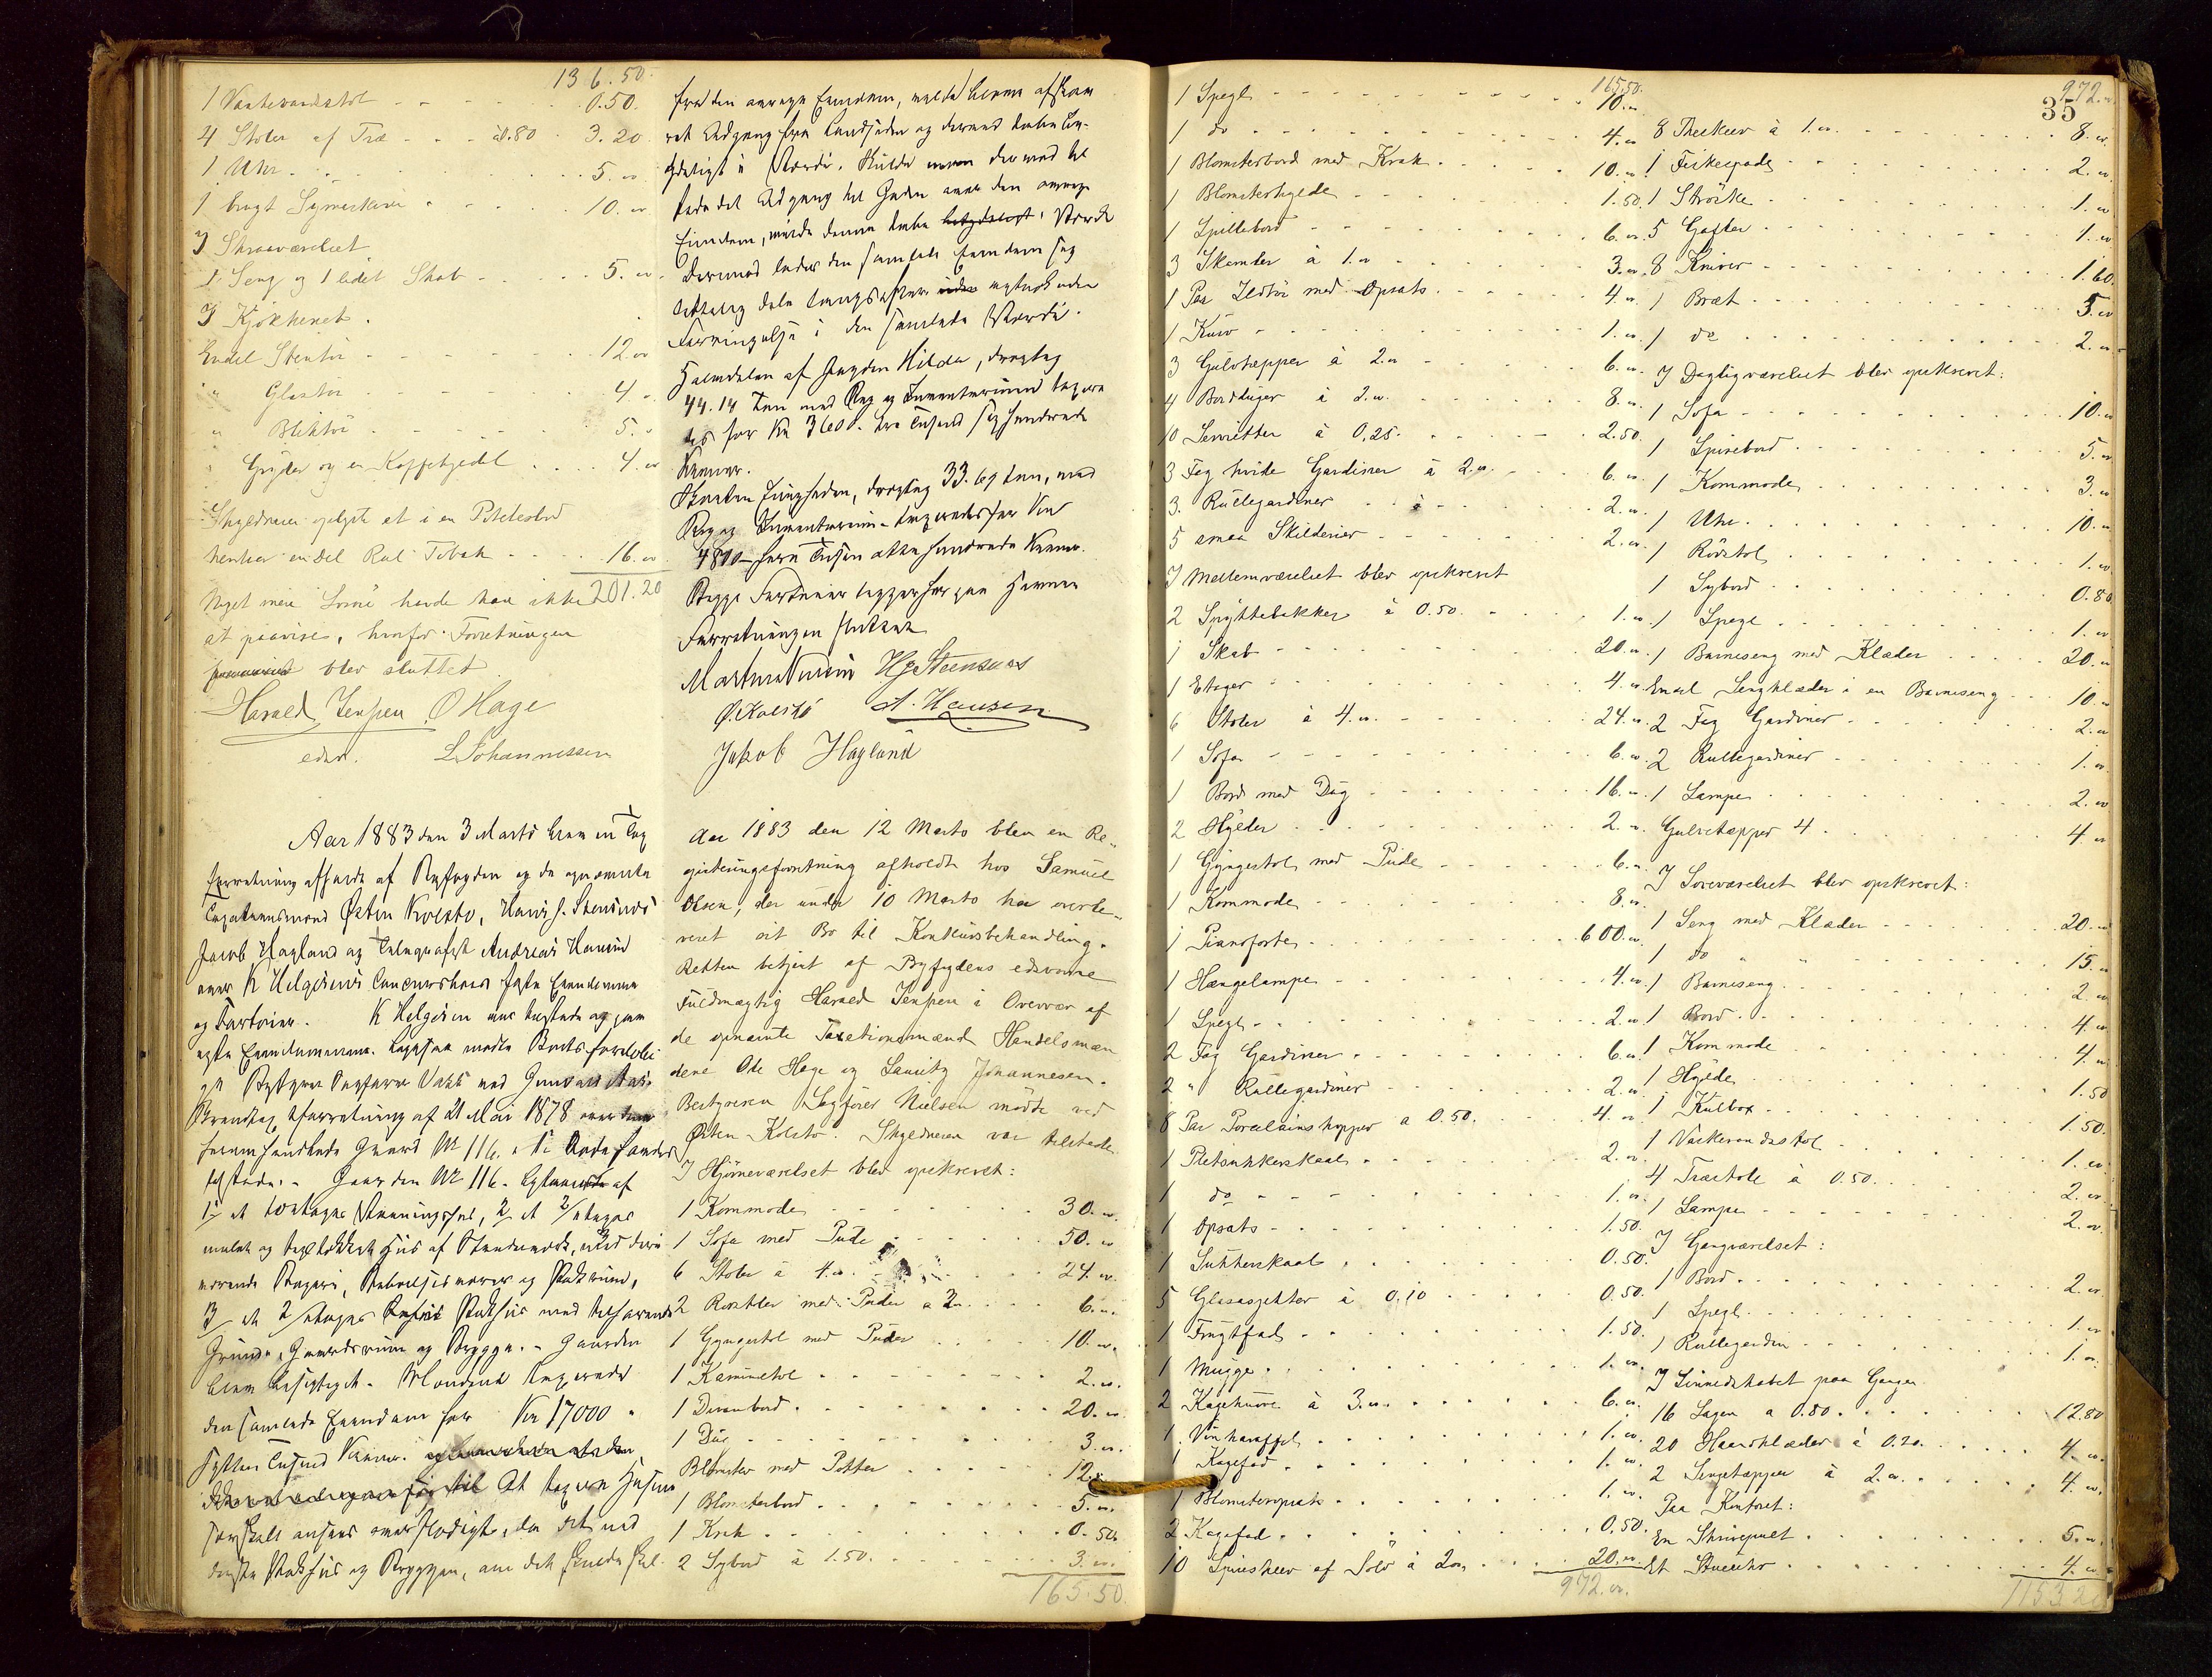 136.50.
1 Vaskevandsstol - - - - 0.50.
4 Stoler af Træ - - - à 0.80 3.20
1 Uhr - - - 5. "
1 brugt Symaskine - - - 10. "
I Skraaværelset
1 Seng og 1 lidet Skab - - - 5. "
I Kjøkkenet.
Endel Stentøi - - - 12. "
" Glastøi - - - 4. "
" Bliktøi - - - 5. "
" Gryder og en Kaffekjedel - - - 4. "
Skyldneren opgiver at i en
henstaar en del Rul Tobak - - - 16. "
201.20
Noget mere Løsøre havde han ikke
at paavise, hvorfor Forretningen
blev sluttet.
Harald Jenssen O Hage
edsv. L Johannessen
Aar 1883 den 3 Marts blev en Tax
forretning afholdt af Byfogden og de opnævnte
Taxationsmænd Østen Kolstø, Hans J. Stensnes
Jacob Hagland og Telegrafist Andreas Hansen
over K Helgesens Concursboes faste Eiendomme
og Fartøier. K Helgesen var tilstede og paa
viste Eiendommene. Ligesaa mødte Boets foreløbi
ge Bestyrer
Brandtaxtforretning af 21 Mai 1878
Gaard No 116.
tilstede. - Gaarden No 116.
1/ et toetages Vaaningshus, 2/ et 2 etages
malet og tegltækket Hus af Bindingsværk, med deri
værende Bageri,
3/ et 2 etages Pakhus med tilhørende
Grund, Gaardsrum og Brygge. - Gaarden
blev besigtiget.
den samlede Eiendom for Kr 17000 -
sytten Tusend Kroner.
At taxere Husene
særskilt ansees overflødigt, da det ned
derste Pakhus og Bryggen, om det skulde skil-
fra den øvrige Eiendom, vilde blive afskaa
ret Adgang fra Landsiden og derved tabe be-
tydeligt i Værdi. Skulde derimod til
stedet Adgang til Gaden over den øvrige
Eiendom, vilde denne tabe betydeligt i Værdi
Derimod lader den samlede Eiendom sig
uden
Forringelse i den samlede Værdi.
Halvdelen af Jagten Hilda, drægtig
44.14 Tons med Rig og Inventarium taxere
des for Kr 3600 - tre Tusend sex hundrede
Kroner.
Skøiten Enigheden, drægtig 33.69 Tons, med
Rig og Inventarium - taxeredes for Kr
4800 - fire Tusen otte hundrede Kroner.
Begge Fartøier ligger her paa Havnen
Forretningen sluttet
H J Steensnes
Ø. Kolstø A. Hansen
Jakob Hagland
Aar 1883 den 12 Marts blev en Re-
gistreringsforretning afholdt hos Samuel
Olsen, der under 10 Marts har overle-
veret sit Bo til Konkursbehandling.
Retten betjent af Byfogdens edsvorne
Fuldmægtig Harald Jenssen i Overvær af
de opnævnte Taxationsmænd Handelsmæn
dene Ole Hage og Lauritz Johannesen.
Bestyreren Sagfører Nielsen mødte ved
Østen Kolstø. Skyldneren var tilstede
I Hjørneværelset blev opskrevet:
1 Kommode - - - 30. "
1 Sofa med Pude - - - 50. "
6 Stoler à 4. " - - - 24. "
2 med Puder à 3. " - - - 6. "
1 Gyngestol med Puder - - - 10. "
1 Kaminstol - - - 2. "
1 Divanbord - - - 20. "
1 Dug - - - 3. "
Blomster med Potter - - - 12. "
1 Blomsterbord - - - 5. "
1 Krak - - - 0.50.
2 Sybord à 1.50. - - - 3. "
165.50.
165.50.
1 Spegl - - - 10. "
1 do - - - 4. "
1 Blomsterbord med Krak - - - 10. "
1 Blomsterhylde - - - 1.50.
1 Spillebord - - - 6. "
3 Skamler à 1. " - - - 3. "
1 Par Ildtøi med Opsats - - - 4. "
1 Kurv - - - 1. "
3 Gulvtæpper à 2. " - - - 6. "
4 Bordduger à 2. " - - - 8. "
10 Servietter à 0.25. - - - 2.50.
3 Fag hvide Gardiner à 2. " - - - 6. "
3 Rullegardiner - - - 2. "
5 smaa Skilderier - - - 2. "
I Mellemværelset blev opskrevet
2 Spyttebakker à 0.50. - - - 1. "
1 Skab - - - 20. "
1 Etager - - - 4. "
6 Stoler à 4. " - - - 24. "
1 Sofa - - - 6. "
1 Bord med Dug - - - 16. "
2 Hylder - - - 2. "
1 Gyngestol med Pude - - - 6. "
1 Kommode - - - 8. "
1 Pianoforte - - - 600. "
1 Hængelampe - - - 4. "
1 Spegl - - - 2. "
2 Fag Gardiner - - - 6. "
2 " Rullegardiner - - - 2. "
8 Par Porcelainskopper à 0.50. - - - 4. "
1 Pletsukkerskaal - - - 2. "
1 do - - - 1. "
1 Opsats - - - 1.50.
1 Sukkerskaal - - - 0.50.
5 Glasasjetter à 0.10 - - - 0.50.
1 Frugtfad - - - 1.50.
1 Mugge - - - 1. "
2 Kagekurve à 3. " - - - 6. "
1 Vinkaraffel - - - 1. "
1 Kagefad - - - 1. "
1 Blomsteropsats - - - 1. "
2 Kagefad - - - 0.50.
10 Spiseskeer af Sølv à 2. " - - - 20. "
972. "
972. "
35
8 Theskeer à 1. " - - - 8. "
1 Fiskespade - - - 2. "
1 Strøske - - - 1. "
5 Gafler - - - 1. "
8 Kniver - - - 1.60
1 Bræt - - - 5. "
1 do - - - 2. "
I Dagligværelset blev opskrevet:
1 Sofa - - - 10. "
1 Spisebord - - - 5. "
1 Kommode - - - 3. "
1 Uhr - - - 10. "
1 Rørstol - - - 1. "
1 Sybord - - - 0.80
1 Spegl - - - 1. "
1 Barneseng med Klæder - - - 20. "
Endel Sengklæder i en Barneseng - - - 10. "
2 Fag Gardiner - - - 2. "
2 Rullegardiner - - - 1. "
1 Lampe - - - 2. "
Gulvtæpper 4 - - - 4. "
I Soveværelset blev opskrevet:
1 Seng med Klæder - - - 20. "
1 do " " - - - 15. "
1 Barneseng - - - 2. "
1 Bord - - - 4. "
1 Kommode - - - 4. "
1 Hylde - - - 1.50
1 Kulbox - - - 1.50.
1 Vaskevandsstol - - - 1. "
4 Træstole à 0.50. - - - 2. "
1 Lampe - - - 2. "
I Gangværelset:
1 Bord - - - 2. "
1 Spegl - - - 1. "
1 Rullegardin - - - 1. "
I Linnedskabet paa Gangen
16 Lagen à 0.80 - - - 12.80
20 Haandklæder à 0.20 - - - 4. "
2 Sengetæpper à 2. " - - - 4. "
Paa Kontoret:
En Skrivepult - - - 5. "
Et Stueuhr - - - 4. "
1153.20